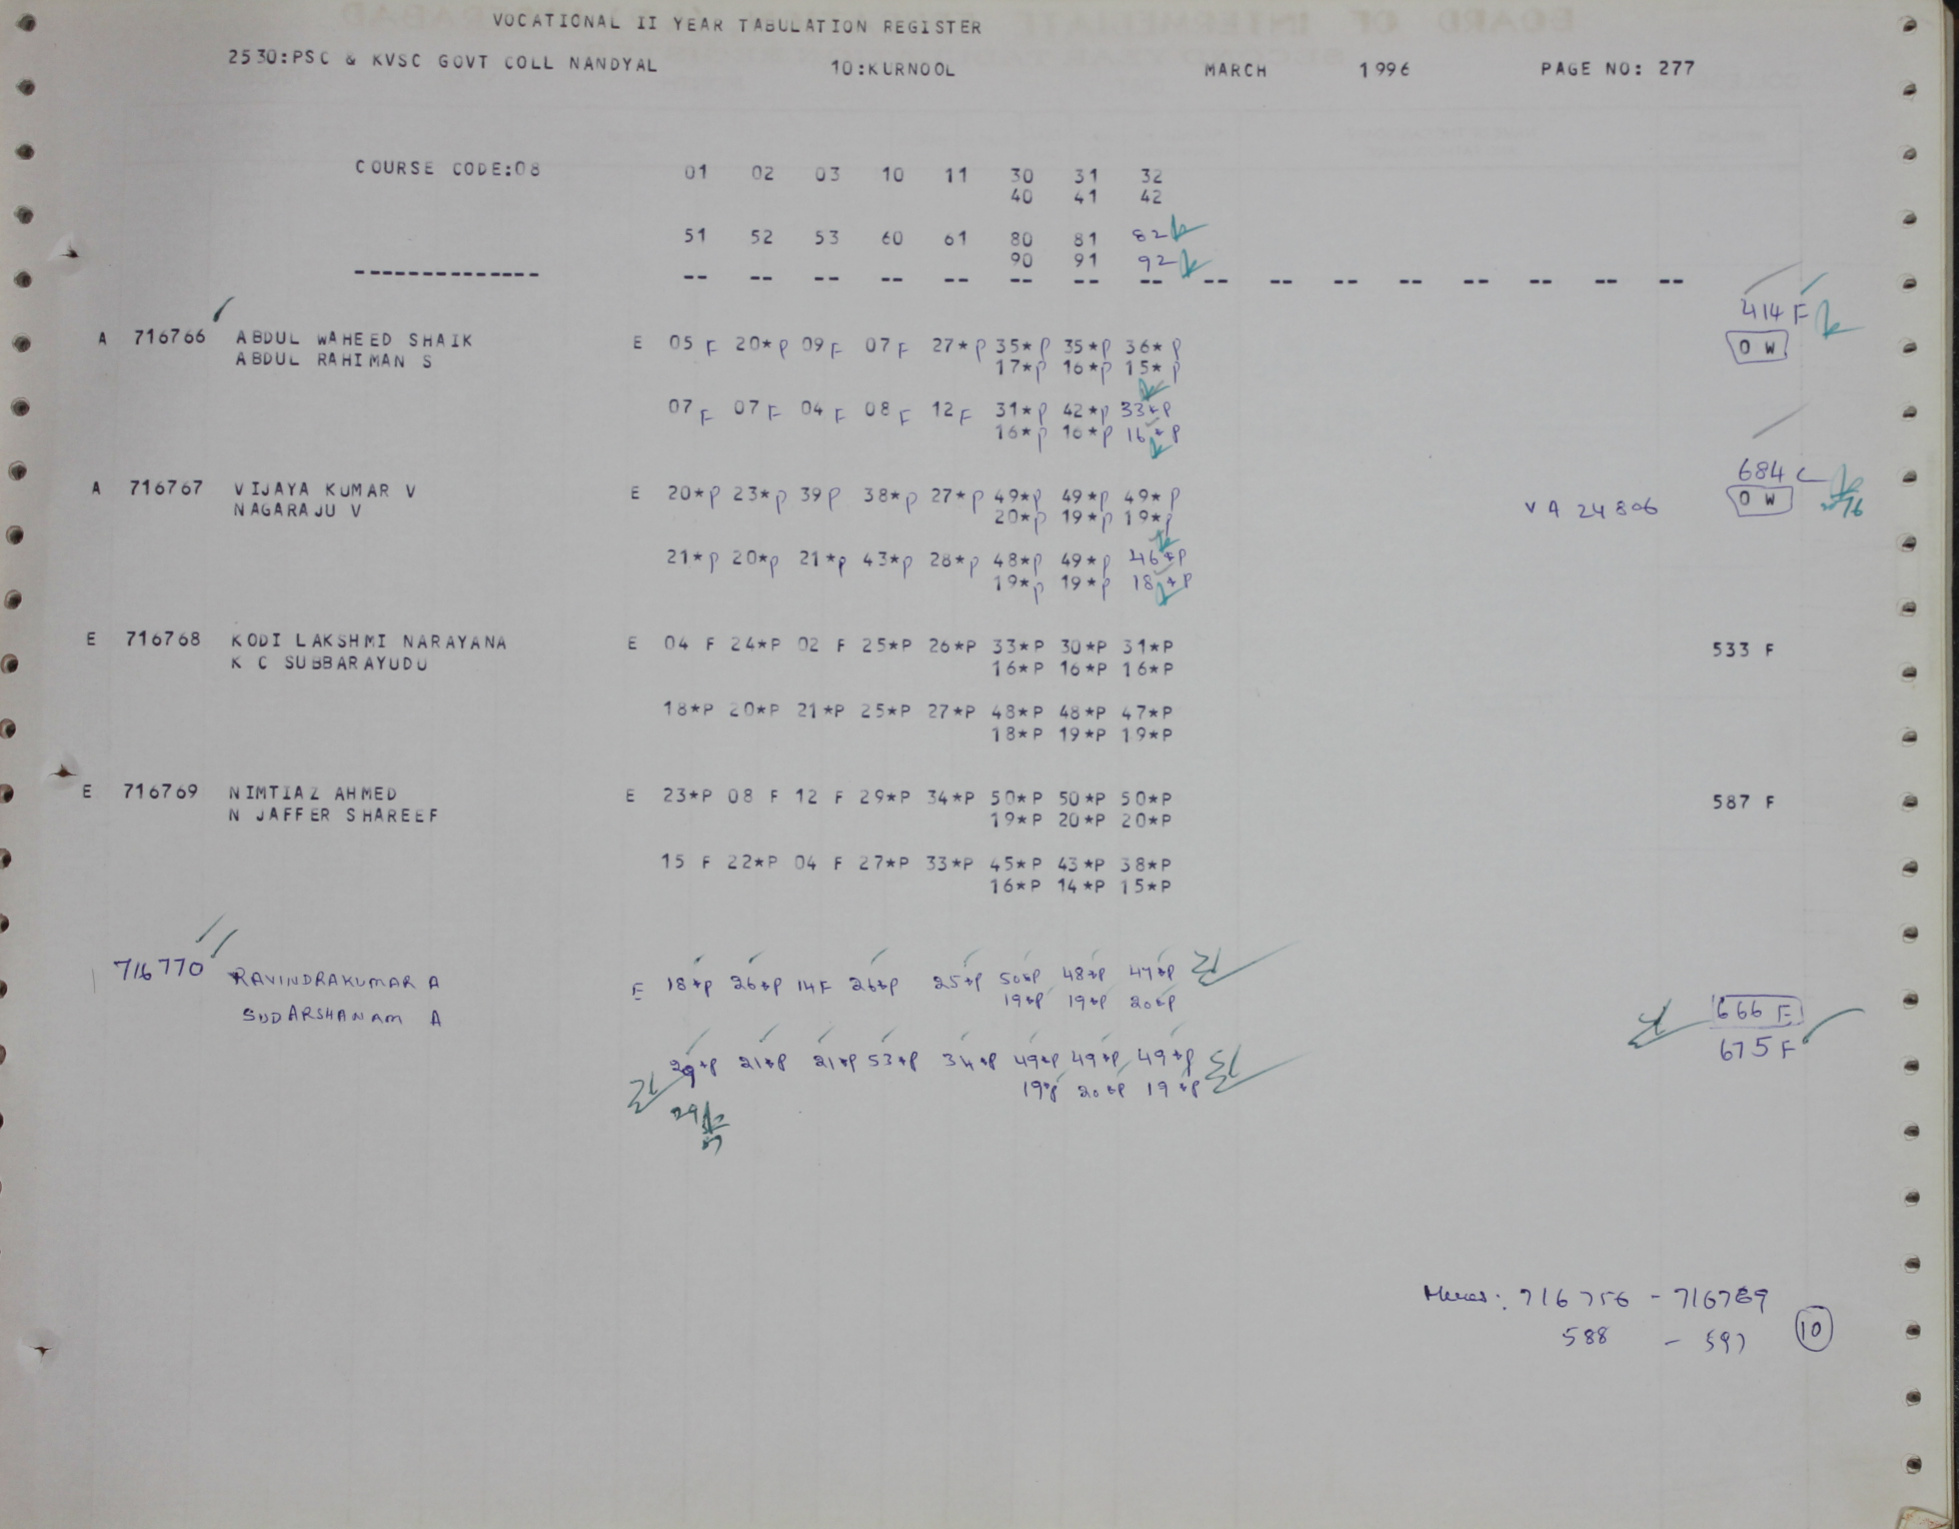 VOCATIONAL II YEAR TABULATION REGISTER
2530:PSC & KVSC GOVT COLL NANDYAL 10:KURNOOL MARCH 1996 PAGE NO: 277
COURSE CODE:08 01 02 03 10 11 30 31 32
40 41 42
51 52 53 60 61 80 81 82
90 91 92
-------------- -- -- -- -- -- -- -- -- -- -- -- -- -- -- -- --
414 F
A 716766 ABDUL WAHEED SHAIK E 05 F 20*P 09 F 07 F 27*P 35*P 35*P 36*P O W
ABDUL RAHIMAN S 17*P 16*P 15*P
07 F 07 F 04 F 08 F 12 F 31*P 42*P 33*P
16*P 16*P 16*P
684 C
A 716767 VIJAYA KUMAR V E 20*P 23*P 39 P 38*P 27*P 49*P 49*P 49*P O W
NAGARAJU V 20*P 19*P 19*P VA 24806
21*P 20*P 21*P 43*P 28*P 48*P 49*P 46*P
19*P 19*P 18*P
E 716768 KODI LAKSHMI NARAYANA E 04 F 24*P 02 F 25*P 26*P 33*P 30*P 31*P 533 F
K C SUBBARAYUDU 16*P 16*P 16*P
18*P 20*P 21*P 25*P 27*P 48*P 48*P 47*P
18*P 19*P 19*P
E 716769 NIMTIAZ AHMED E 23*P 08 F 12 F 29*P 34*P 50*P 50*P 50*P 587 F
N JAFFER SHAREEF 19*P 20*P 20*P
15 F 22*P 04 F 27*P 33*P 45*P 43*P 38*P
16*P 14*P 15*P
716770 RAVINDRAKUMAR A E 18*P 26*P 14 F 26*P 25*P 50*P 48*P 47*P
SUDARSHANAM A 19*P 19*P 20*P 666 F
675 F
29*P 21*P 21*P 53*P 34*P 49*P 49*P 49*P
19*P 20*P 19*P
29
716756 - 716769
588 - 597 10